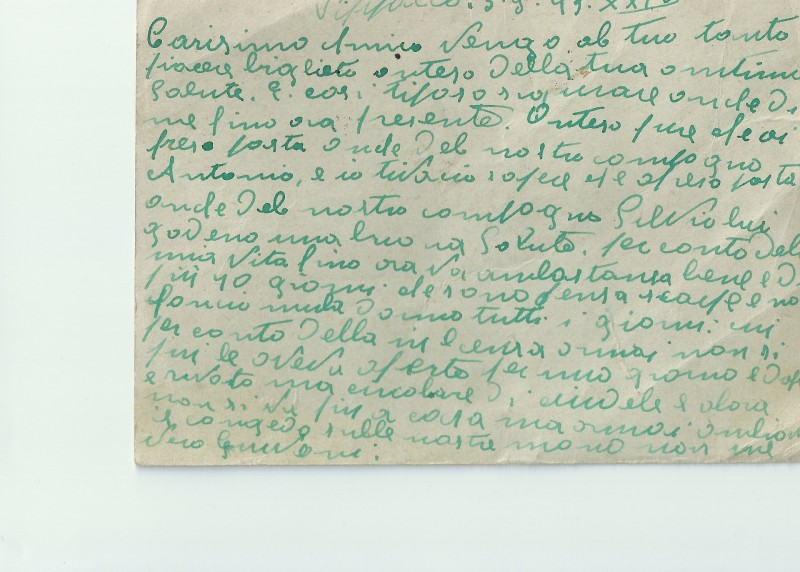 5.9.43.XXI
Carisimo Amico Vengo al tuo tanto
piacere biglieto inteso Della tua ontima
Salute. E cosi tiposo sigurare onde di
me fino ora presente. Onteso pure che ai
preso posta onde del nostro compagno
Antonio, e io ti facio sapere che o preso posta
onde Del nostro compagno Silvio lui
godeno una buona Salute. per conto Della
mia vita fino ora va ambastansa bene e Di
più 10 giorni che sono senza scarpe e no
foncio nulla Dormo tutti i giorni. mi
per conto Della m licensa ormai non si
più le aveva aperto per uno giorno e dop
e rivato una circolare Di ciudele e alora
non si va più a casa ma ormai ambiamo
il congedo sulle nostre mano non me